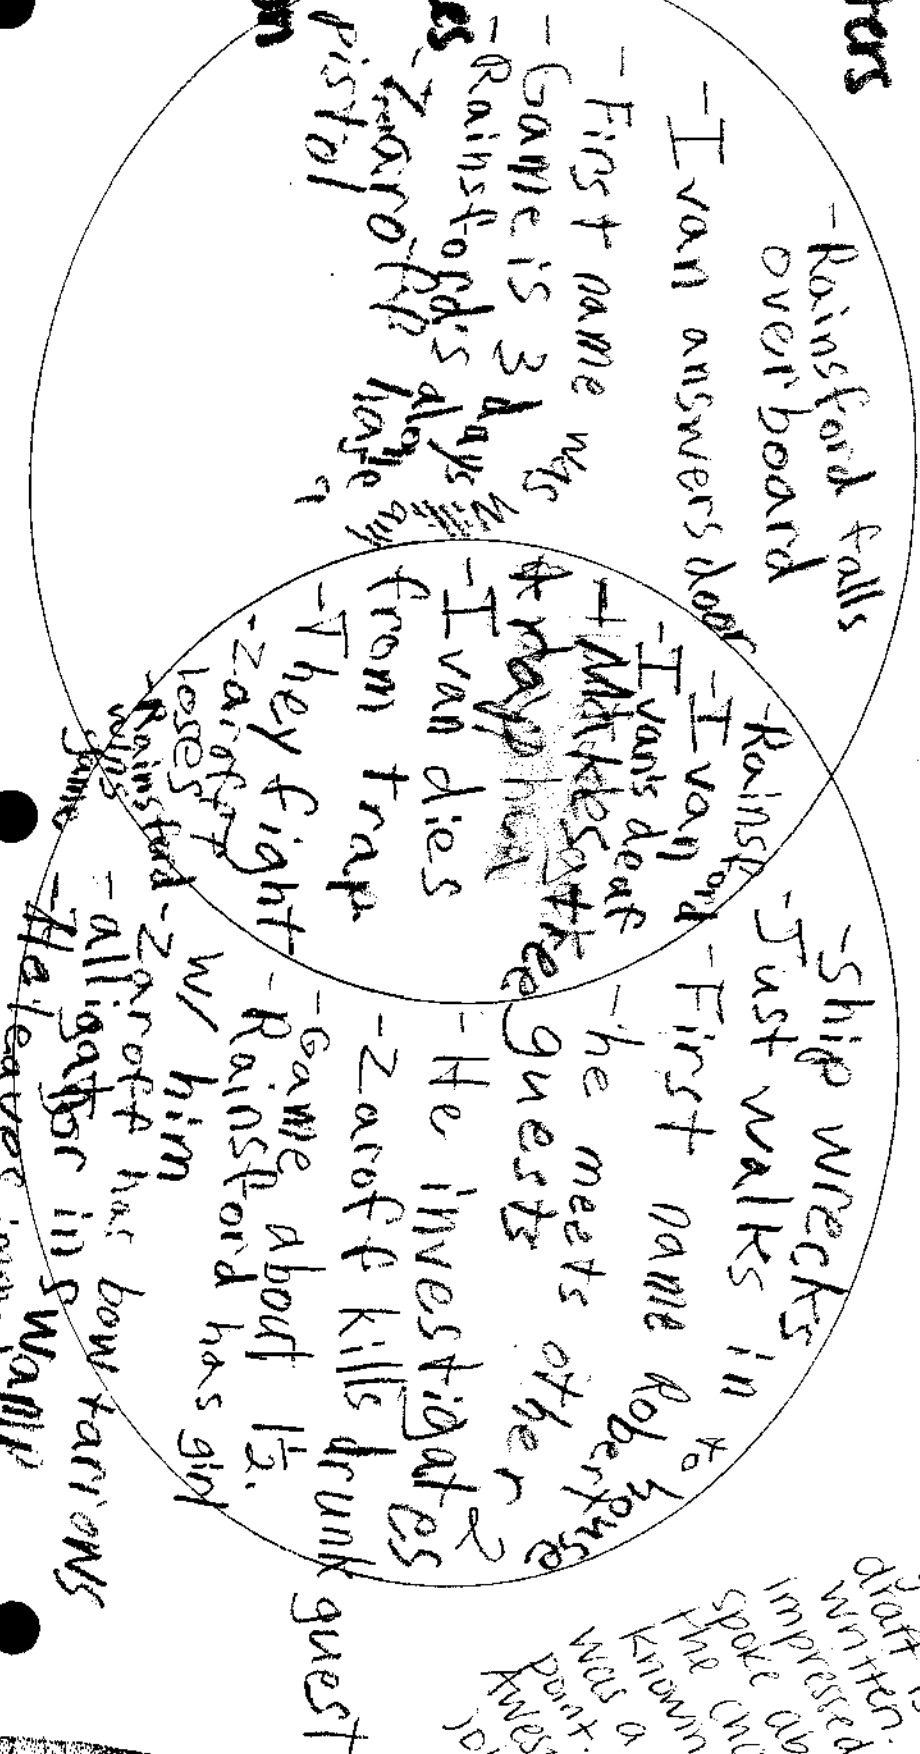 ters
- Rainsford falls
overboard
- Ivan answers door
- First name was
- Game is 3 days
- Rainsford is alone
- Zaroff
pistol
- Rainsford
- Ivan
- Ivan's deaf
- Makes a tree
trap
- Ivan dies
from trap
- They fight
- Zaroff
loses
- Rainsford
wins
game
- Ship wrecks
- Just walks in to house
- First name Robert
- he meets other 2
guests
- He investigates
- Zaroff kills drunk guest
- Game about 1½.
- Rainsford has girl
w/ him
- Zaroff has bow + arrows
- alligator in swamp
draft
written.
impressed
spoke ab
the cha
knowin
was a
point.
Awes